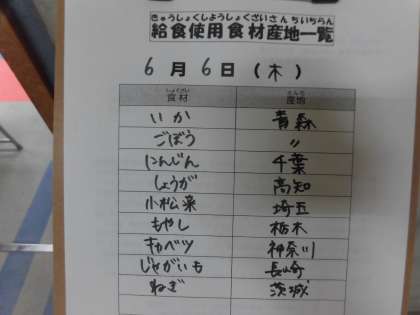 きゅうしょくしようしょくざいさんちいちらん
給食使用食材産地一覧
6月6日(木)
しょくざい さんち
食材 産地
いか 青森
ごぼう 〃
にんじん 千葉
しょうが 高知
小松菜 埼玉
もやし 栃木
キャベツ 神奈川
じゃがいも 長崎
ねぎ 茨城